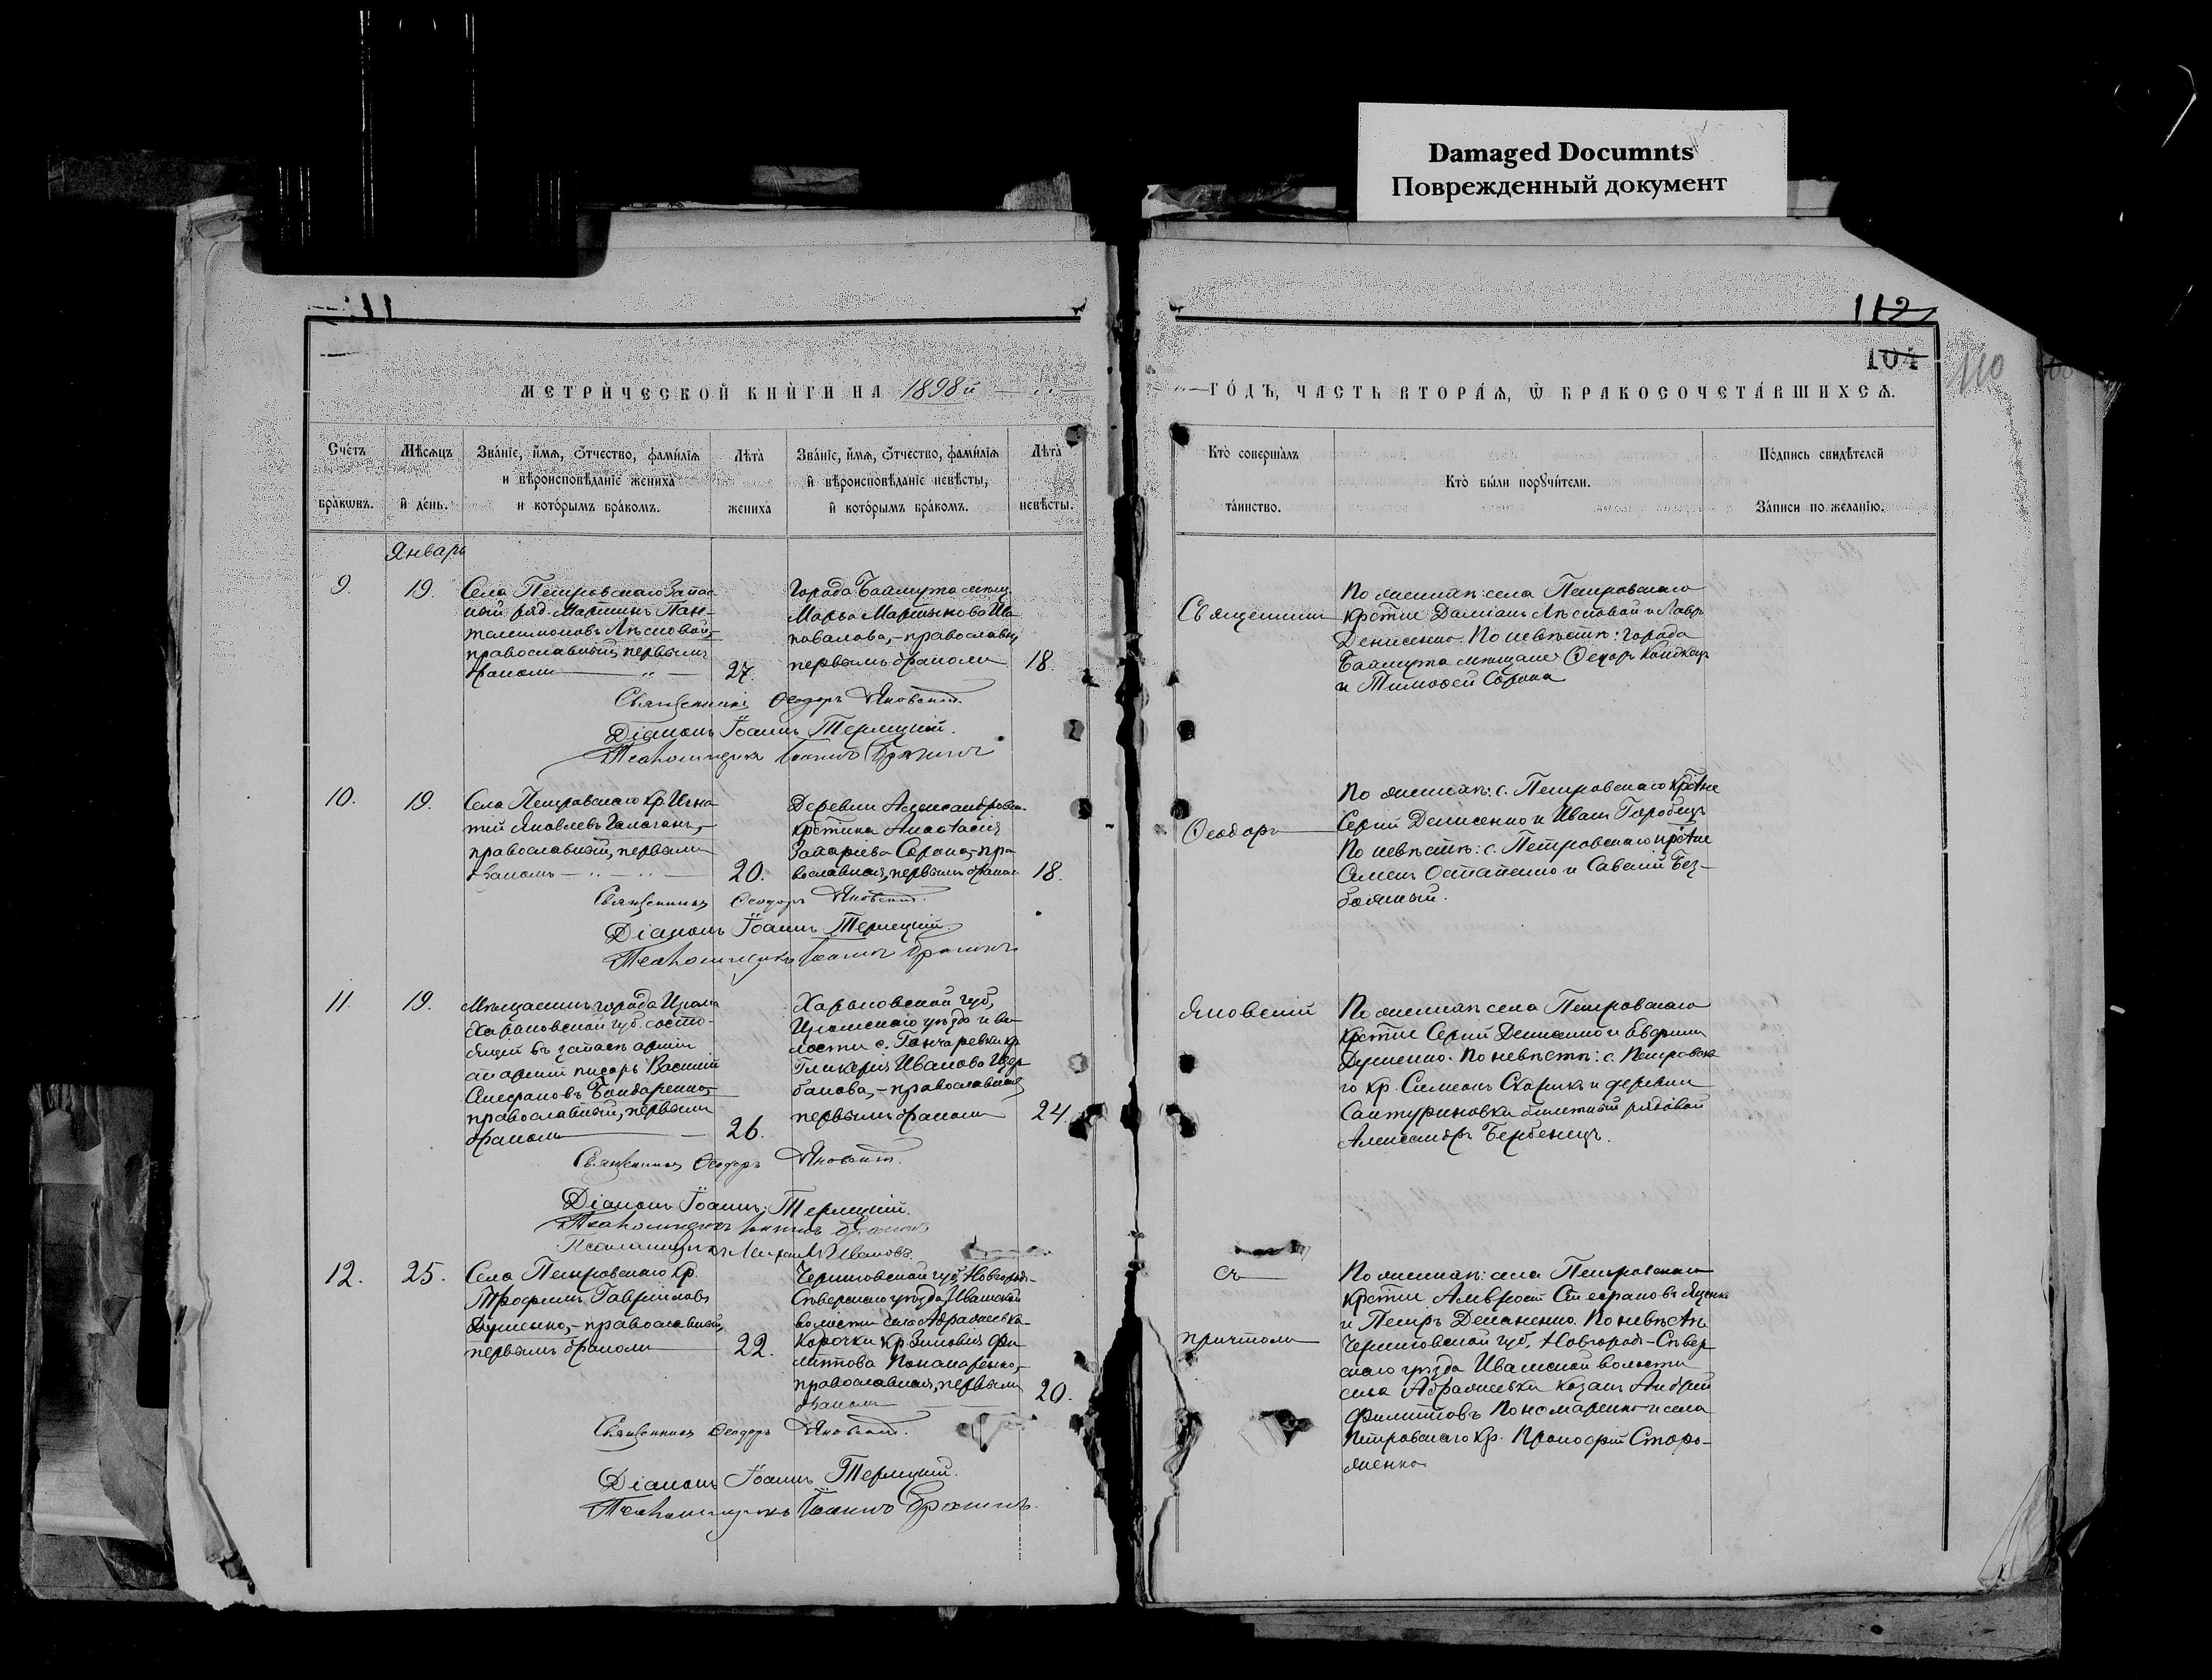 Damaged Documnts
Поврежденный документ
11
112
104
110
МЕТРИ́ЧЕСКОЙ КНИ́ГИ НА 1898й
ГО́ДЪ, ЧАСТЬ ВТОРА́Ѧ, Ѿ БРАКОСОЧЕТА́ВШИХСѦ.
Счетъ бракѡвъ.
Мѣсѧцъ и҆ де́нь.
Зва́нїе, и҆́мѧ, ѻ҆́тчество, фамилїѧ и вѣроисповѣданїе жениха и кото́рымъ бра́комъ.
Лѣта̀ жениха
Зва́нїе, и҆́мѧ, ѻ҆́тчество, фами́лїѧ и҆ вѣроисповѣданїе невѣсты, и҆ кото́рымъ бра́комъ.
Лѣта̀ невѣсты.
Кто̀ соверша́лъ та́инство.
Кто̀ бы́ли порꙋчи́тели.
По́дпись свидѣтелей За́писи по желанїю.
Январь
9.
19.
Села Петровскаго Запас
ный ряд. Мартинъ Пан-
телимоновъ Лѣсовой,-
православный, первымъ
бракомъ
27.
Города Бахмута мѣщ.
Марѳа Мартинова
повалова,- православн,
первымъ бракомъ
18.
Священникъ
По женихѣ: села Петровскаго
крстне Даміанъ Лѣсовой и Лавръ
Денисенко. По невѣстѣ: города
Бахмута мѣщане Ѳедоръ
и Тимоѳей Сорока
Священникъ Ѳеодоръ Яновскій.
Діаконъ Іоаннъ Терлецкій.
Псаломщикъ Іоаннъ
10.
19.
Села Петровскаго кр. Игна
тій Яковлевъ Галаганъ,-
православный, первымъ
бракомъ
20.
Деревни Александровки
крстнка Анастасія
Захаріева Сорока,- пра
вославная, первымъ браком
18.
Ѳеодоръ
По женихѣ: с. Петровскаго крстне
Сергій Денисенко и Иванъ Горобецъ
По невѣстѣ: с. Петровскаго крстне
Симеонъ Остапенко и Савелій Без-
божный.
Священникъ Ѳеодоръ Яновскій.
Діаконъ Іоаннъ Терлецкій.
Псаломщикъ Іоаннъ
11.
19.
Мѣщанинъ города Изюма
Харьковской губ. состо-
ящій въ запасѣ арміи
старшій писарь Василій
Стефановъ Бондаренко,
православный, первымъ
бракомъ
26.
Харьковской губ,
Изюмскаго уѣзда и во-
лости с. Гончаровки кр.
Гликерія Иванова Щер
бакова,- православная,
первымъ бракомъ
24.
Яновскій
По женихѣ села Петровскаго
крстне Сергій Денисенко и Евфимъ
Душенко. По невѣстѣ: с. Петровска
го кр. Симеонъ Скорикъ и деревни
Сантуриновки билетный рядовой
Александръ Бербенецъ.
Священникъ Ѳеодоръ Яновскій.
Діаконъ Іоаннъ Терлецкій.
Псаломщикъ Іоаннъ
Псаломщикъ Ивановъ.
12.
25.
Села Петровскаго кр.
Трофимъ Гавриловъ
Душенко,- православный,
первымъ бракомъ
22.
Черниговской губ, Новгородъ-
Сѣверскаго уѣзда, Ивашской
волости села Абрамовка
Корочки кр. Зиновія Фи
липпова Пономаренко,-
православная, первымъ
бракомъ
20.
съ
причтомъ
По женихѣ: села Петровскаго
крстне Амвросій Стефановъ Яценко
и Петръ Демяненко. По невѣстѣ
Черниговской губ, Новгородъ-Сѣвер
скаго уѣзда Ивашской волости
села Абрамовка козакъ Андрей
Филипповъ Пономаренко и села
Петровскаго кр. Прокофій Сторо-
женко
Священникъ Ѳеодоръ Яновскій.
Діаконъ Іоаннъ Терлецкій.
Псаломщикъ Іоаннъ